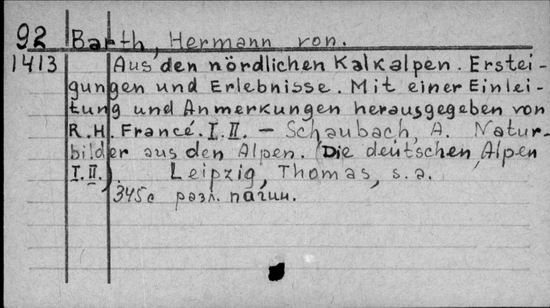 92 Barth, Hermann von.
1413 Aus den nördlichen Kalkalpen. Erstei-
gungen und Erlebnisse. Mit einer Einlei-
tung und Anmerkungen herausgegeben von
R. H. Francé. I. II. – Schaubach, A. Natur-
bilder aus den Alpen. (Die deutschen Alpen
I. II.). Leipzig, Thomas, s. a.
345 с разл. пагин.